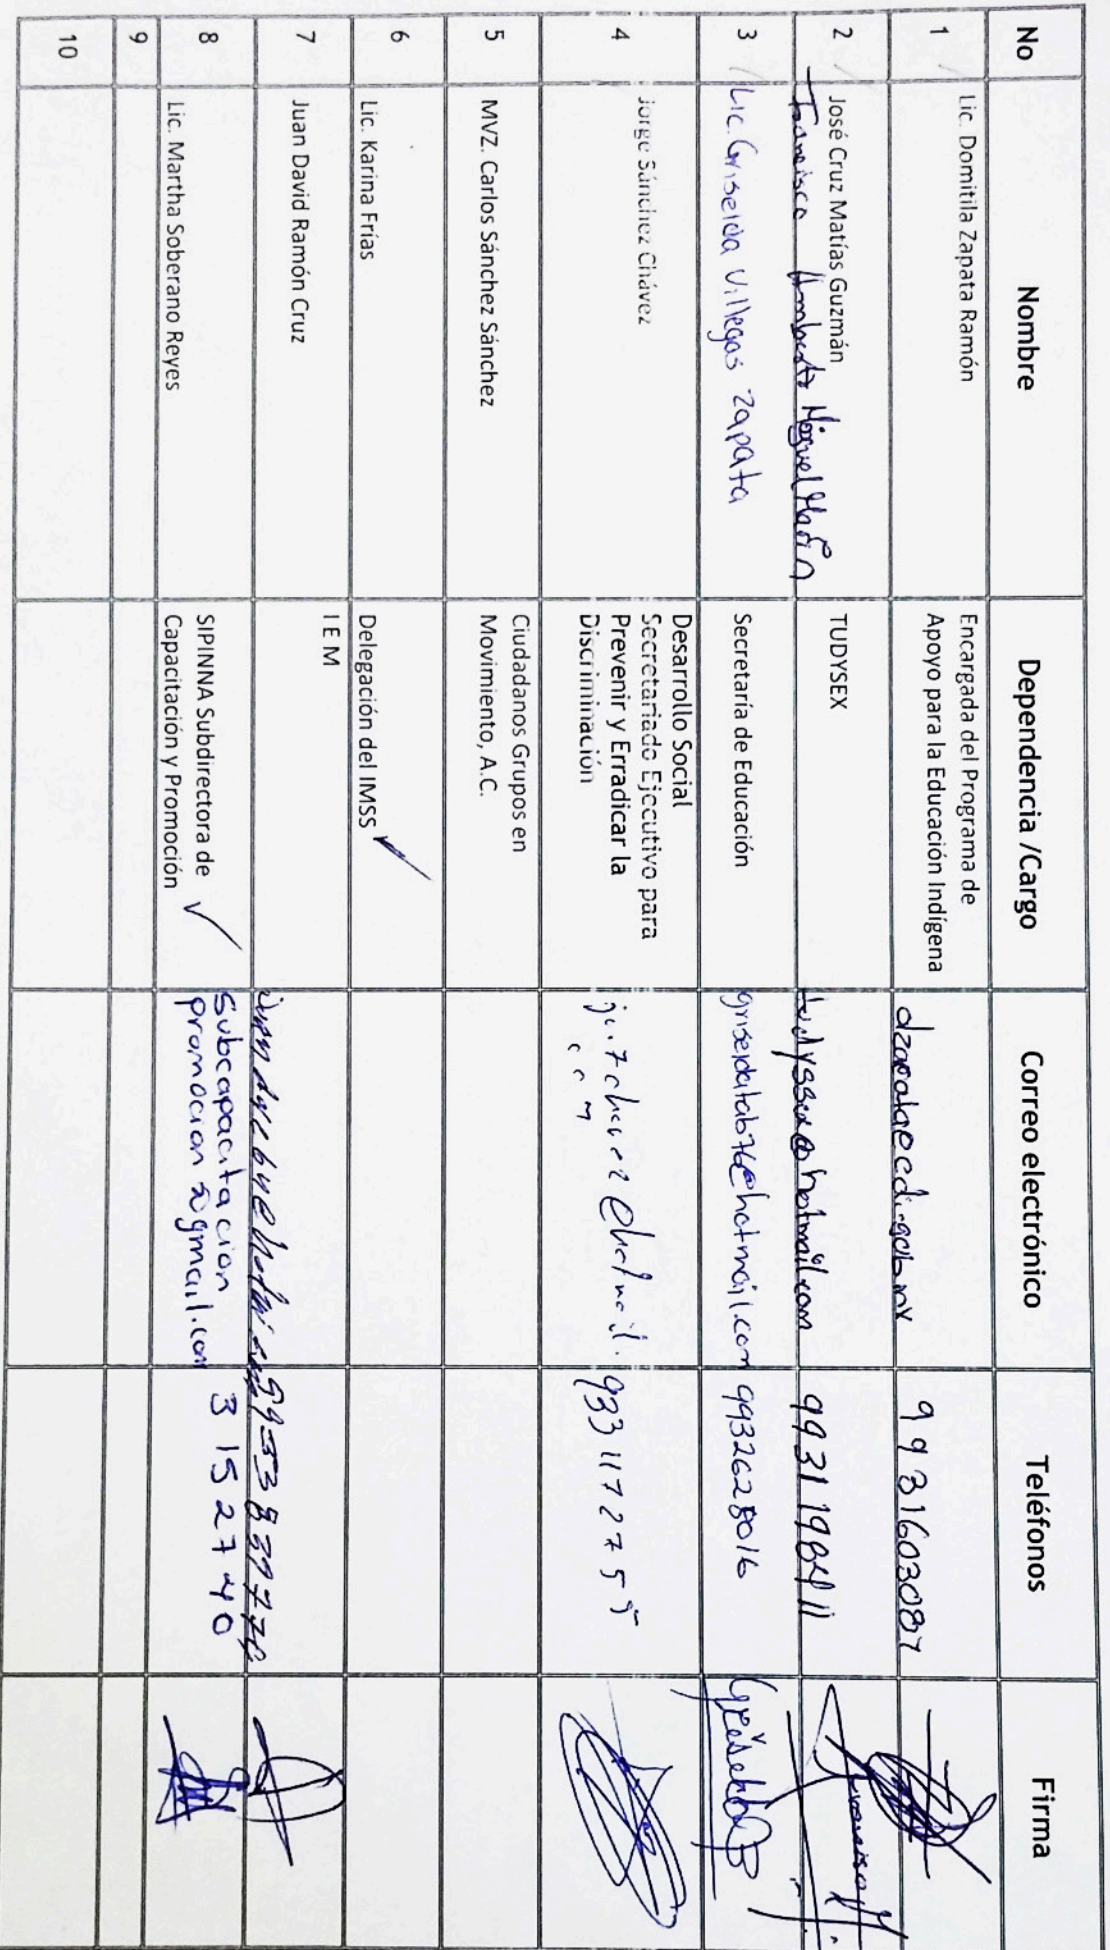 No Nombre Dependencia /Cargo Correo electrónico Teléfonos Firma
1 Lic. Domitila Zapata Ramón Encargada del Programa de
Apoyo para la Educación Indígena 9931603087
2 José Cruz Matías Guzmán TUDYSEX 9931198411
Francisco Humberto Miguel Marín
3 Lic. Griselda Villegas Zapata Secretaría de Educación griseldatab76@hotmail.com 9932628016
4 Jorge Sánchez Chávez Desarrollo Social
Secretariado Ejecutivo para
Prevenir y Erradicar la
Discriminación
5 MVZ. Carlos Sánchez Sánchez Ciudadanos Grupos en
Movimiento, A.C.
6 Lic. Karina Frías Delegación del IMSS ✓
7 Juan David Ramón Cruz I E M
8 Lic. Martha Soberano Reyes SIPINNA Subdirectora de
Capacitación y Promoción ✓
Subcapacitacion
promocion@gmail.com 3 15 27 40
9
10